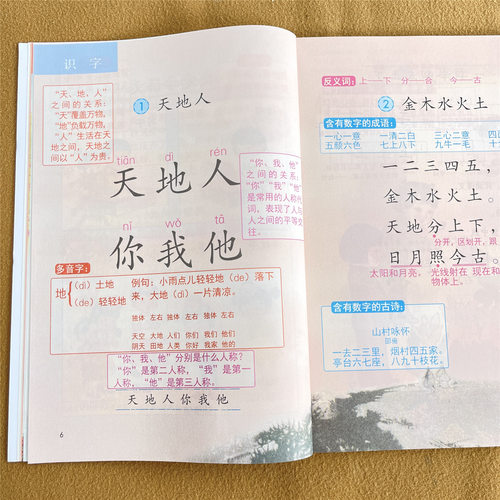 识 字
① 天地人
“天、地、人”
之间的关系:
“天”覆盖万物,
“地”负载万物,
“人”生活在天
地之间,天地之
间以“人”为贵。
tiān dì rén
天地人
“你、我、他”
之间的关系:
“你”“我”“他”
是常用的人称代
词,表现了人与
人之间的平等交
往。
nǐ wǒ tā
你我他
多音字:
地 (dì)土地
(de)轻轻地
例句:小雨点儿轻轻地(de)落下
来,大地(dì)一片清凉。
独体 左右 独体 左右 独体 左右
天空 大地 人们 你们 我们 他们
阴天 田地 人类 你好 我家 他的
“你、我、他”分别是什么人称?
“你”是第二人称,“我”是第一
人称,“他”是第三人称。
天地人你我他
6
反义词: 上——下 分——合 今——古
② 金木水火土
含有数字的成语:
一心一意 一清二白 三心二意
五颜六色 七上八下 九牛一毛
一二三四五,
金木水火土。
天地分上下,
分开,区划开,跟
日月照今古。
太阳和月亮。 光线射在 现在和
物体上。
含有数字的古诗:
山村咏怀
邵雍
一去二三里,烟村四五家。
亭台六七座,八九十枝花。